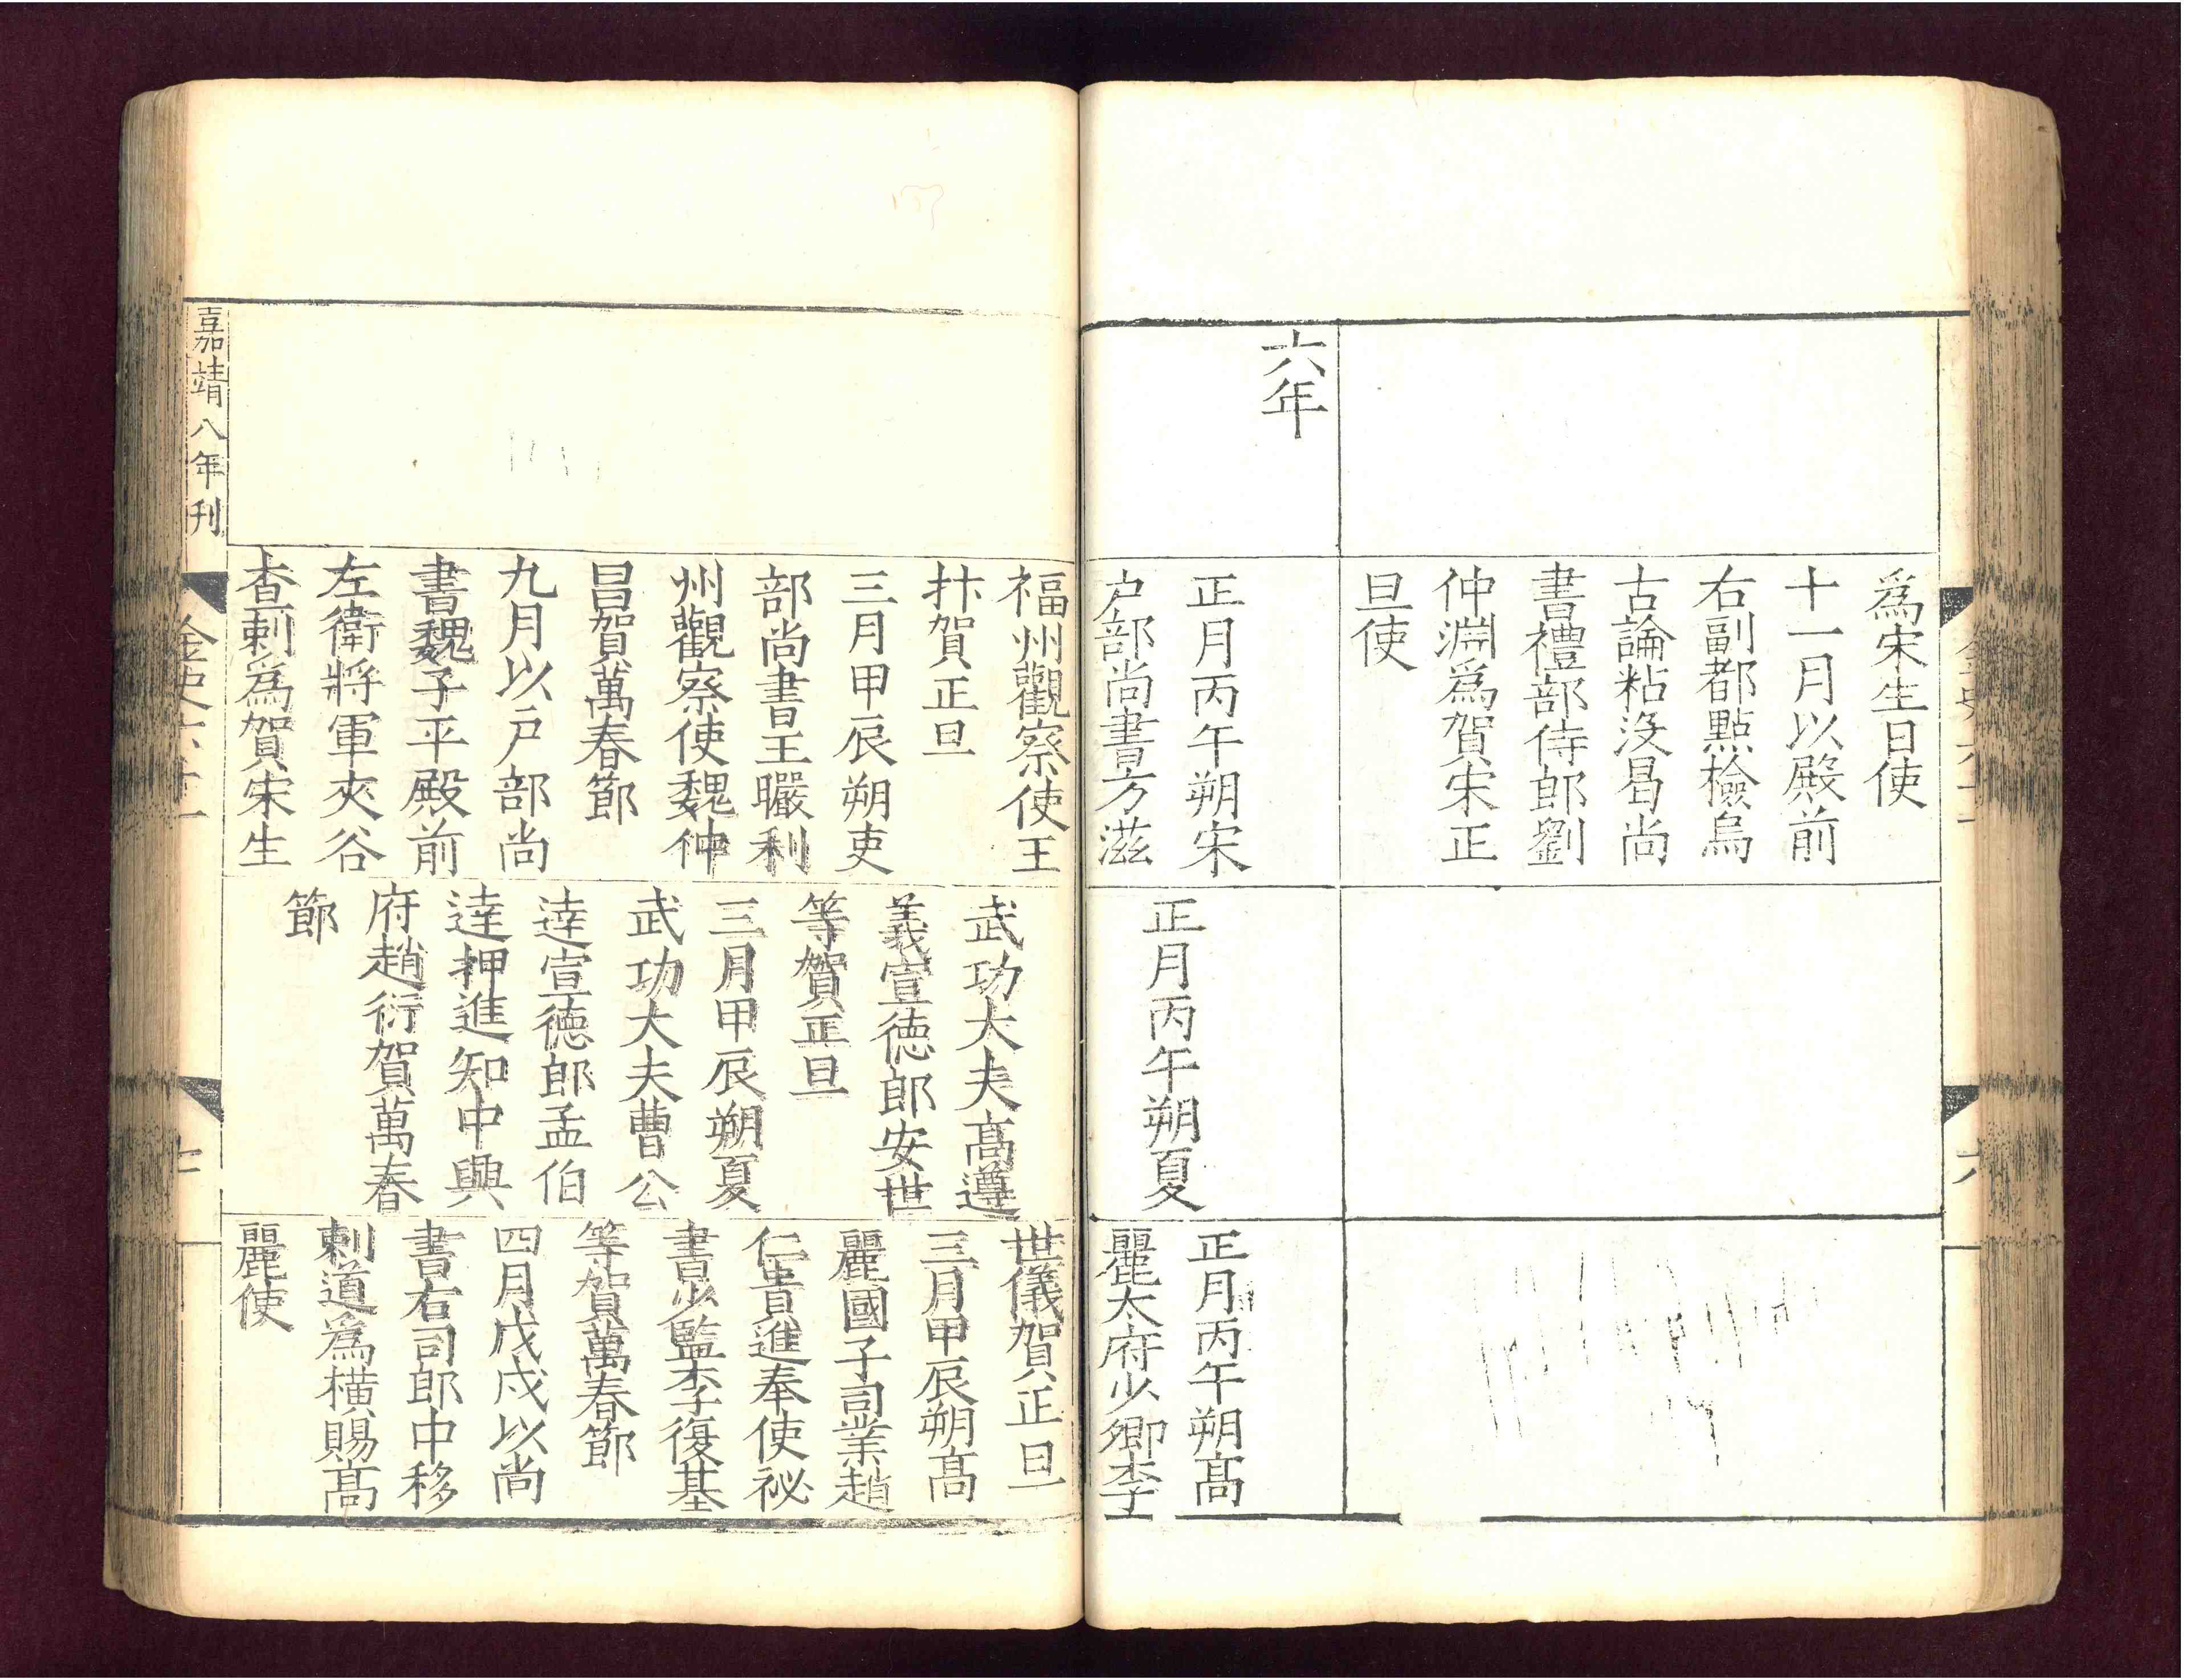 爲宋生日使
十一月以殿前
右副都點檢烏
古論粘沒曷尚
書禮部侍郎劉
仲淵爲賀宋正
旦使
六年
正月丙午朔宋
户部尚書方滋
正月丙午朔夏
正月丙午朔髙
麗太府少卿李
福州觀察使王
抃賀正旦
三月甲辰朔吏
部尚書王曮利
州觀察使魏仲
昌賀萬春節
九月以户部尚
書魏子平殿前
左衛將軍夾谷
查剌爲賀宋生
武功大夫髙遵
義宣德郎安世
等賀正旦
三月甲辰朔夏
武功大夫曹公
逹宣德郎孟伯
逹押進知中興
府趙衍賀萬春
節
世儀賀正旦
三月甲辰朔髙
麗國子司業趙
仁貴進奉使祕
書少監李復基
等賀萬春節
四月戊戌以尚
書右司郎中移
剌道爲横賜髙
麗使
嘉靖八年刊
金史六十一
七